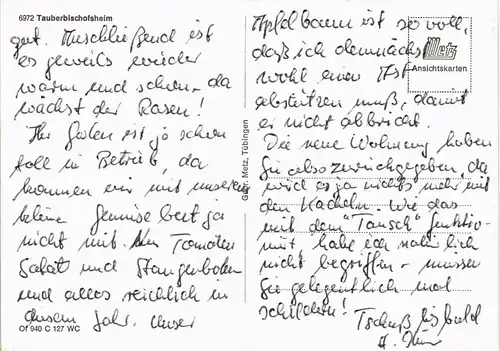 6972 Tauberbischofsheim
gut. Anschließend ist
es jeweils wieder
warm und schön - da
wächst der Rasen!
Ihr Garten ist ja schon
toll in Betrieb, da
kommen wir mit unserem
kleinen Gemüse beet ja
nicht mit. Nur Tomaten
Salat und Stangenbohnen
und alles reichlich in
diesem Jahr. Unser
Of 940 C 127 WC
Gebr. Metz, Tübingen
Apfelbaum ist so voll,
daß ich demnächst
wohl einen Ast
abstützen muß, damit
er nicht abbricht.
Die neue Wohnung haben
Sie also zurückgegeben, da
wird es ja nichts mehr mit
den Kacheln. Wie das
mit dem "Tausch" funktio-
niert habe ich natürlich
nicht begriffen - müssen
Sie gelegentlich mal
schildern!
Tschüß bis bald
Metz
Ansichtskarten